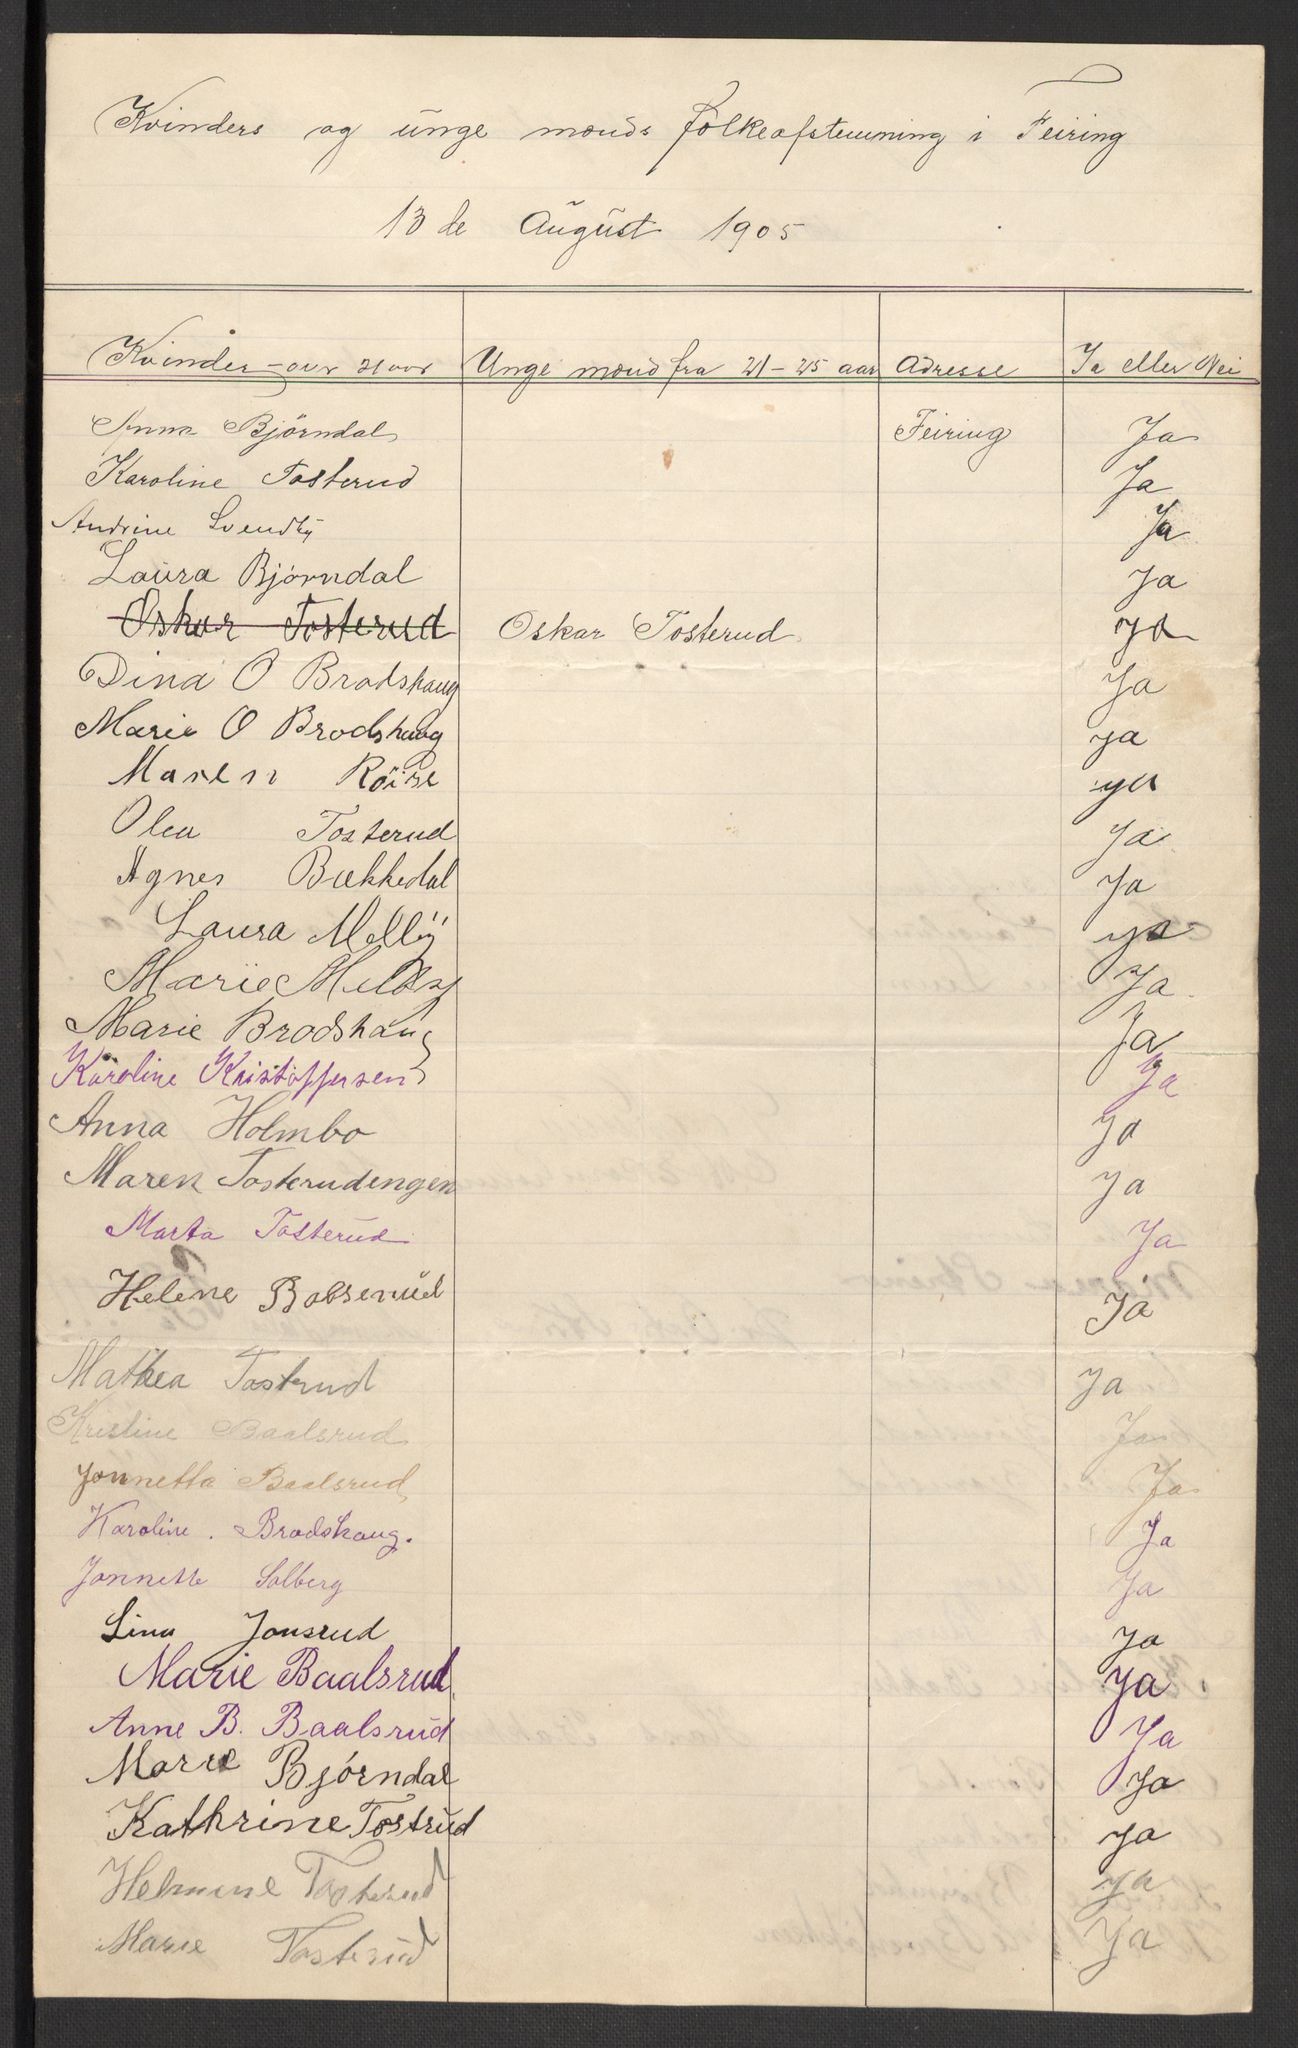 Kvinders og unge mænds folkeafstemning i Feiring
13 de August 1905
Kvinder over 21 aar Unge mænd fra 21-25 aar Adresse Ja eller Nei
Anna Bjørndal Feiring Ja
Karoline Tosterud Ja
Andrine Svendby Ja
Laura Bjørndal Ja
Oskar Tosterud Oskar Tosterud Ja
Dina O Brodshaug Ja
Marie O Brodshaug ja
Maren Røise ja
Olea Tosterud Ja
Agnes Bækkedal Ja
Laura Melby ja
Marie Melby Ja
Marie Brodshaug Ja
Karoline Kristoffersen Ja
Anna Holmbo Ja
Maren Tosterudengen Ja
Marta Tosterud Ja
Helene Baalserud Ja
Mathea Tosterud Ja
Kristine Baalsrud Ja
Jonnetta Baalsrud Ja
Karoline . Brodshaug. Ja
Jonnette Solberg Ja
Lina Jonsrud Ja
Marie Baalsrud Ja
Anne B. Baalsrud Ja
Marie Bjørndal Ja
Kathrine Tostrud Ja
Helmine Tosterud Ja
Marie Tosterud Ja